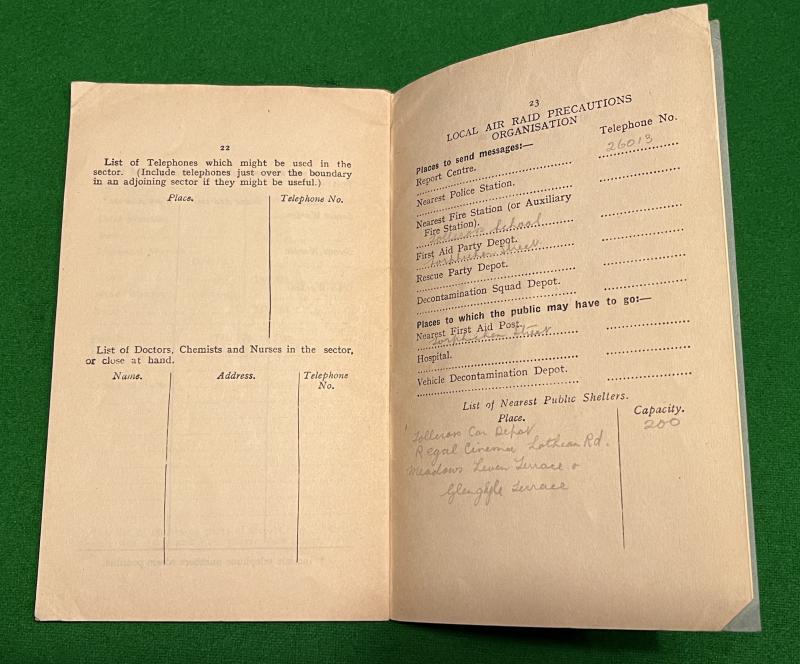 22
List of Telephones which might be used in the
sector. (Include telephones just over the boundary
in an adjoining sector if they might be useful.)
Place. Telephone No.
List of Doctors, Chemists and Nurses in the sector,
or close at hand.
Name. Address. Telephone
No.
23
LOCAL AIR RAID PRECAUTIONS
ORGANISATION
Telephone No.
Places to send messages:—
Report Centre. 26013
Nearest Police Station.
Nearest Fire Station (or Auxiliary
Fire Station).
Tollcross School
First Aid Party Depot.
Torphichen Street
Rescue Party Depot.
Decontamination Squad Depot.
Places to which the public may have to go:—
Nearest First Aid Post.
Torphichen Street
Hospital.
Vehicle Decontamination Depot.
List of Nearest Public Shelters.
Place. Capacity.
Tollcross Car Depot 200
Regal Cinema Lothian Rd.
Meadows Leven Terrace &
Glengyle Terrace